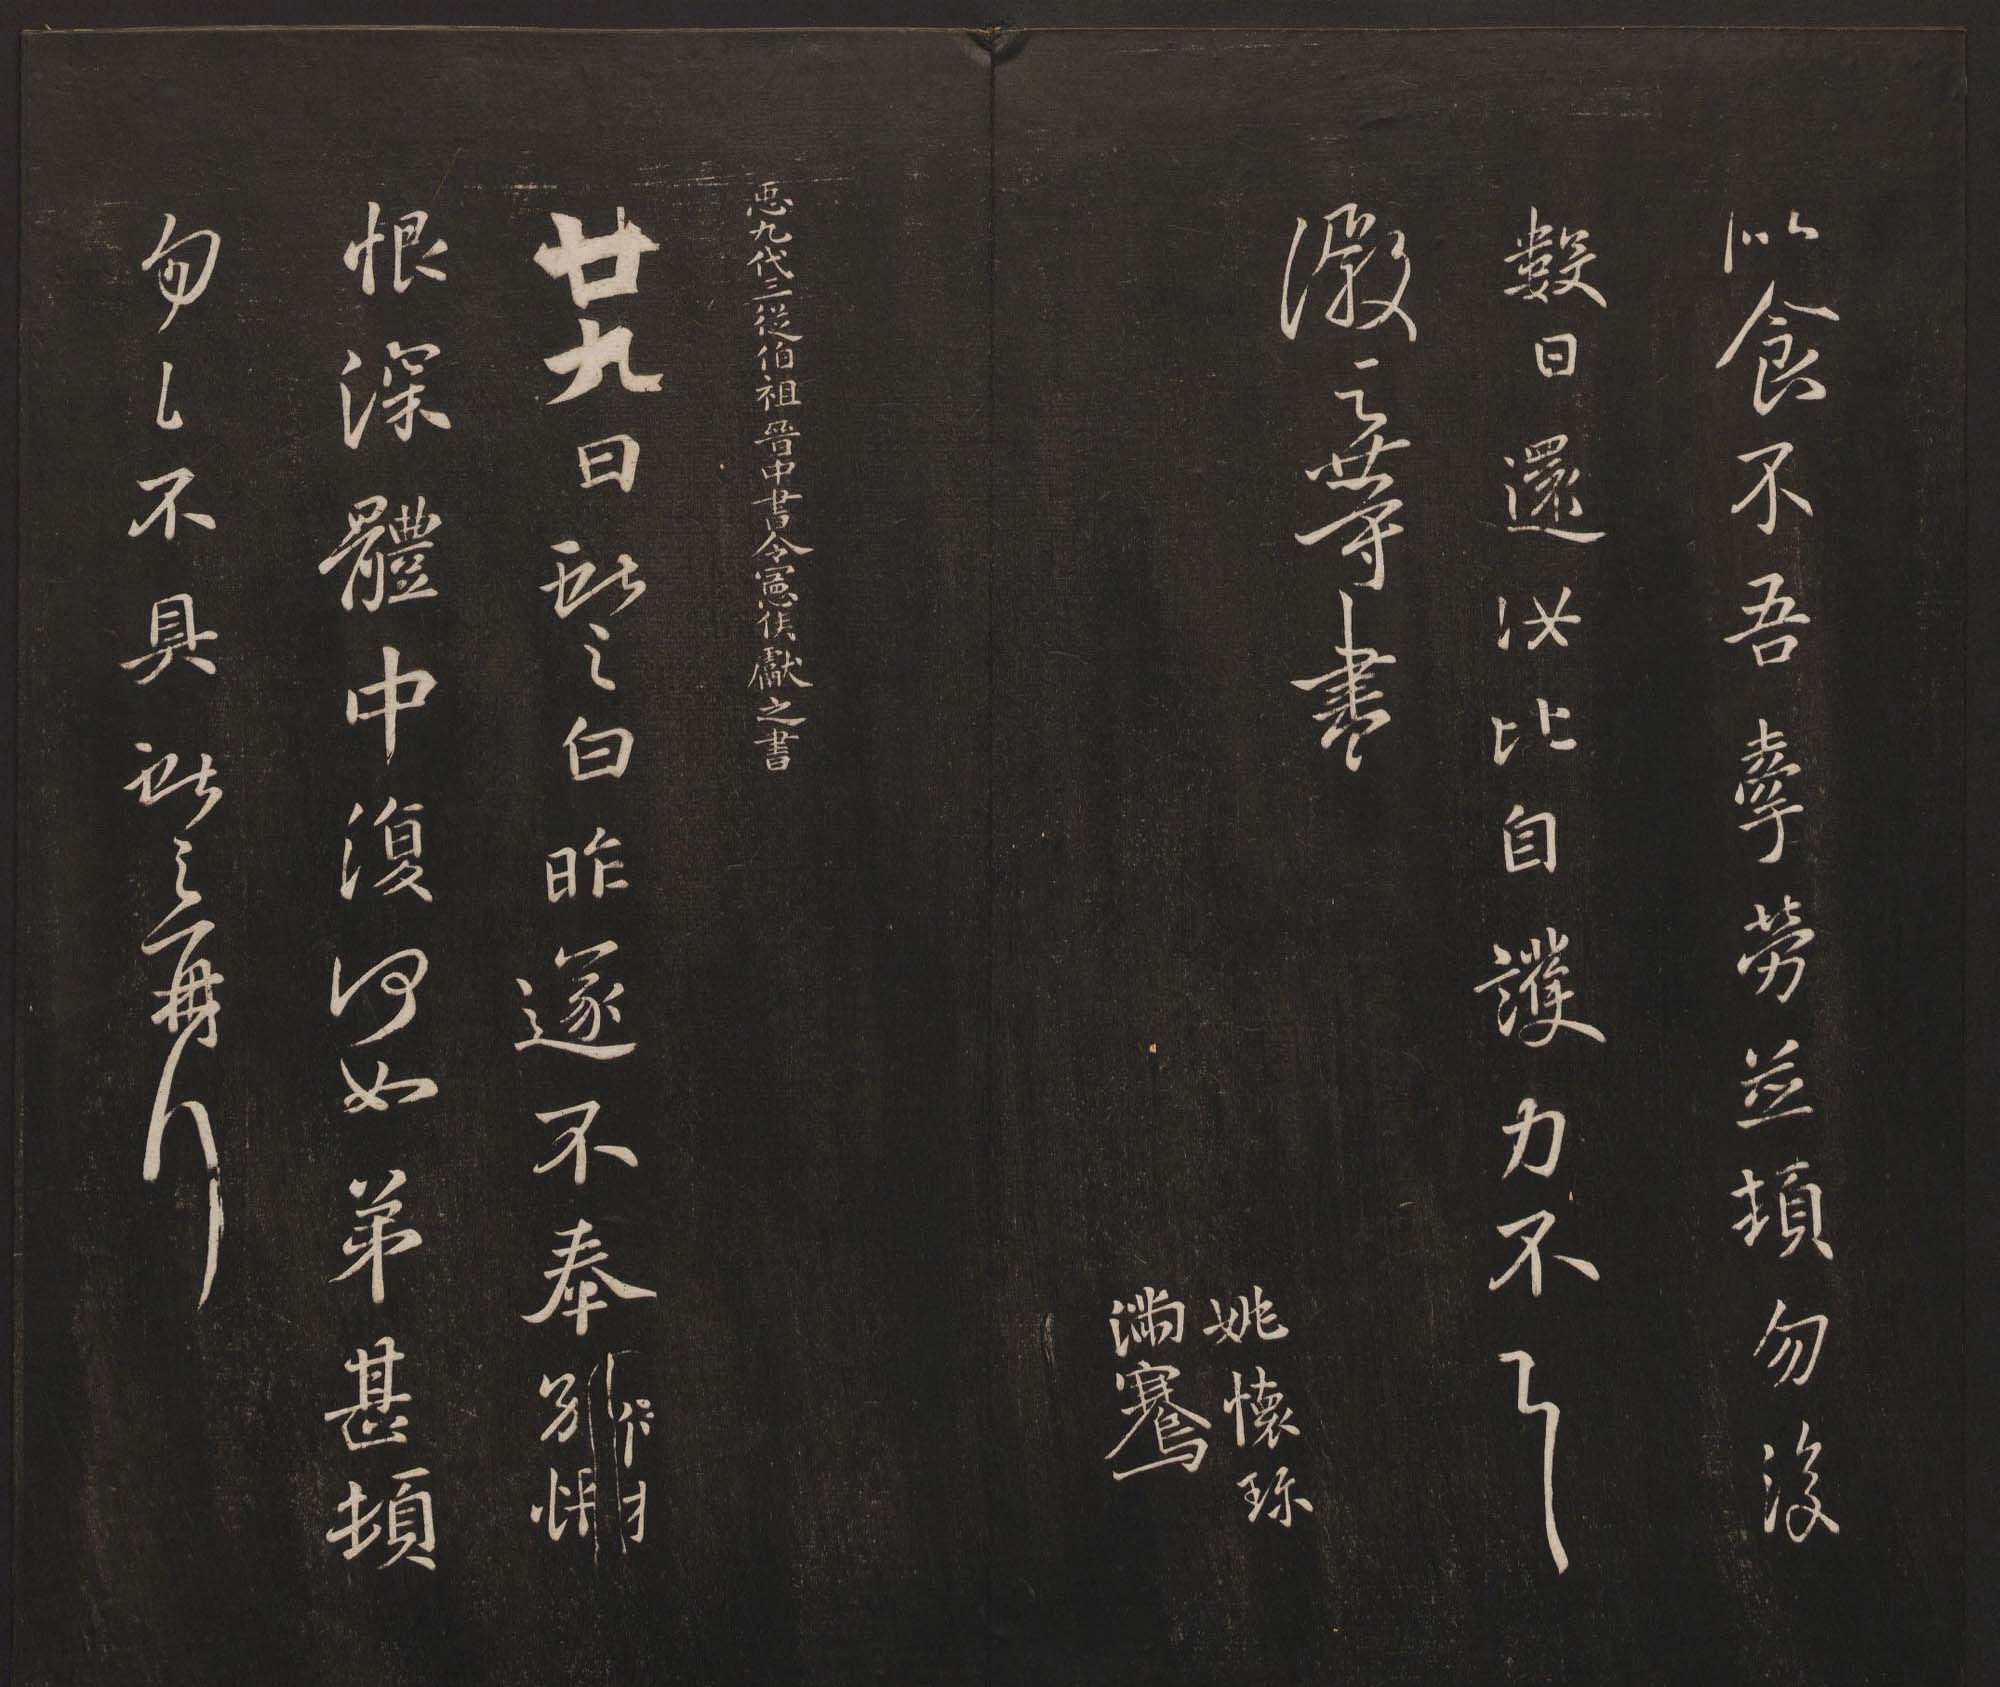 似食不吾牽勞並頓勿復
數日還汝比自護力不具
徽之等書
姚懷珍
滿騫
𢘑九代三從伯祖晉中書令憲侯獻之書
廿九日獻之白昨遂不奉別悵
恨深體中復何如弟甚頓
匆匆不具獻之再拜